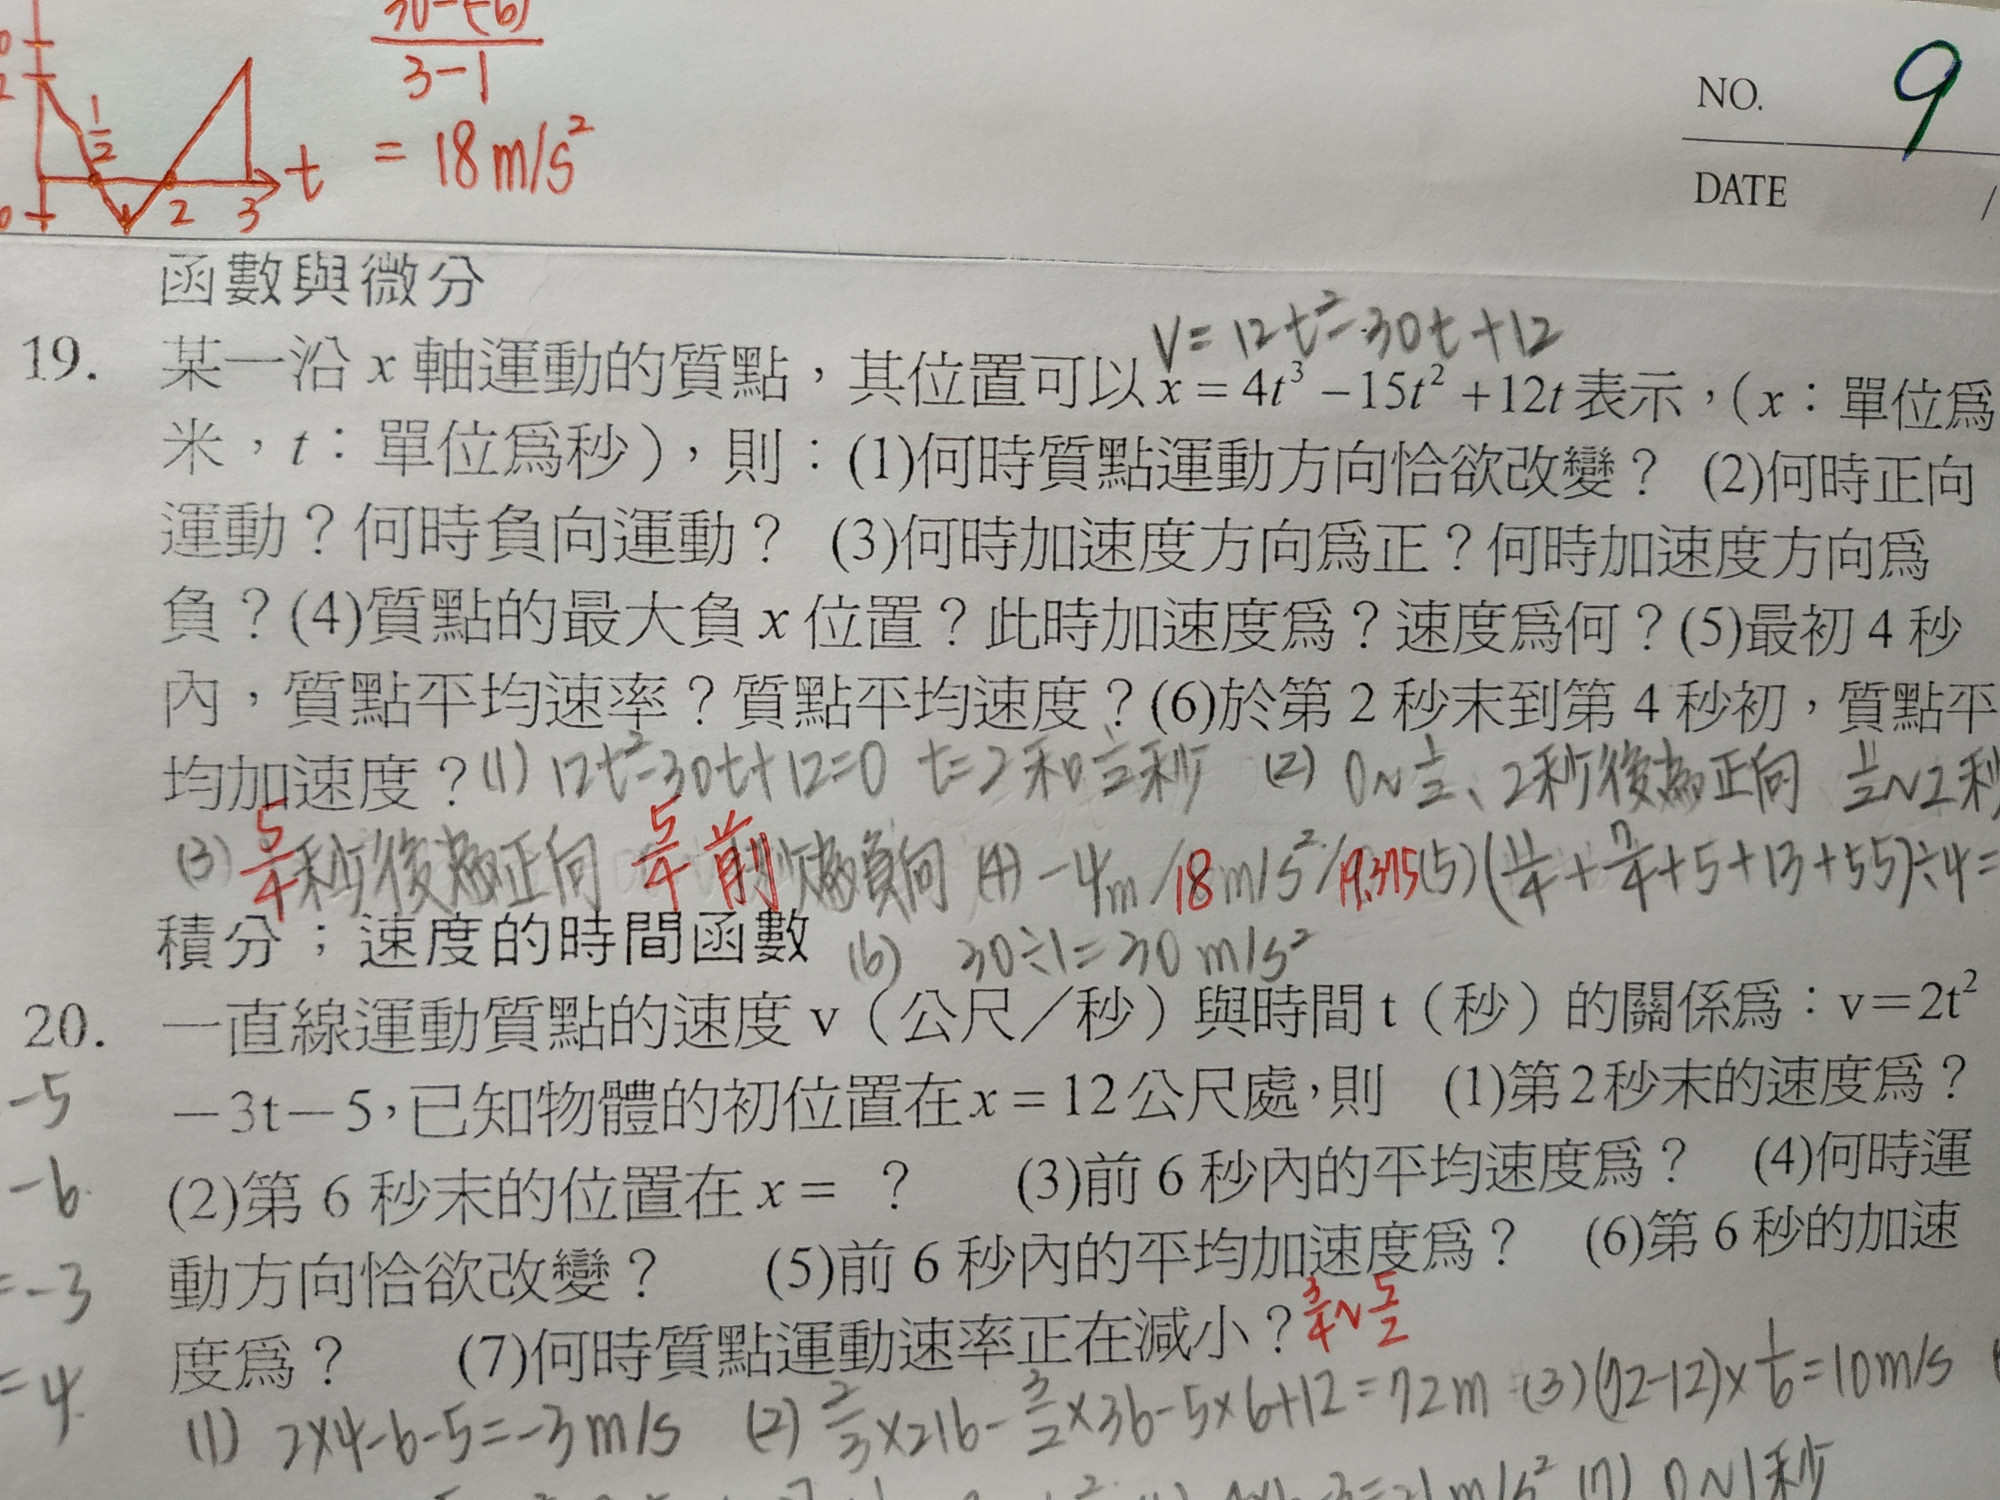 30-(-6)
3-1
= 18 m/s²
1/2
t
2
3
NO. 9
DATE /
函數與微分
V= 12t²-30t+12
19. 某一沿 x 軸運動的質點，其位置可以 x = 4t³ −15t² +12t 表示，( x：單位爲
米，t：單位爲秒)，則：(1)何時質點運動方向恰欲改變？ (2)何時正向
運動？何時負向運動？ (3)何時加速度方向爲正？何時加速度方向爲
負？(4)質點的最大負 x 位置？此時加速度爲？速度爲何？(5)最初 4 秒
內，質點平均速率？質點平均速度？(6)於第 2 秒末到第 4 秒初，質點平
均加速度？(1) 12t²-30t+12=0 t=2和1/2秒 (2) 0~1/2、2秒後為正向 1/2~2秒
(3) 5/4秒後為正向 5/4前 秒為負向 (4) -4m/18m/s²/19.375(5)(11/4+7/4+5+13+55)÷4=
積分；速度的時間函數 (6) 30÷1=30 m/s²
20. 一直線運動質點的速度 v（公尺／秒）與時間 t（秒）的關係爲：v＝2t²
－3t－5，已知物體的初位置在 x = 12 公尺處，則 (1)第 2 秒末的速度爲？
(2)第 6 秒末的位置在 x = ？ (3)前 6 秒內的平均速度爲？ (4)何時運
動方向恰欲改變？ (5)前 6 秒內的平均加速度爲？ (6)第 6 秒的加速
度爲？ (7)何時質點運動速率正在減小？3/4~5/2
-5
-6
=-3
=4
(1) 2×4-6-5=-3m/s (2) 2/3×216-3/2×36-5×6+12=72m (3)(72-12)×1/6=10m/s
=21m/s² (7) 0~1秒